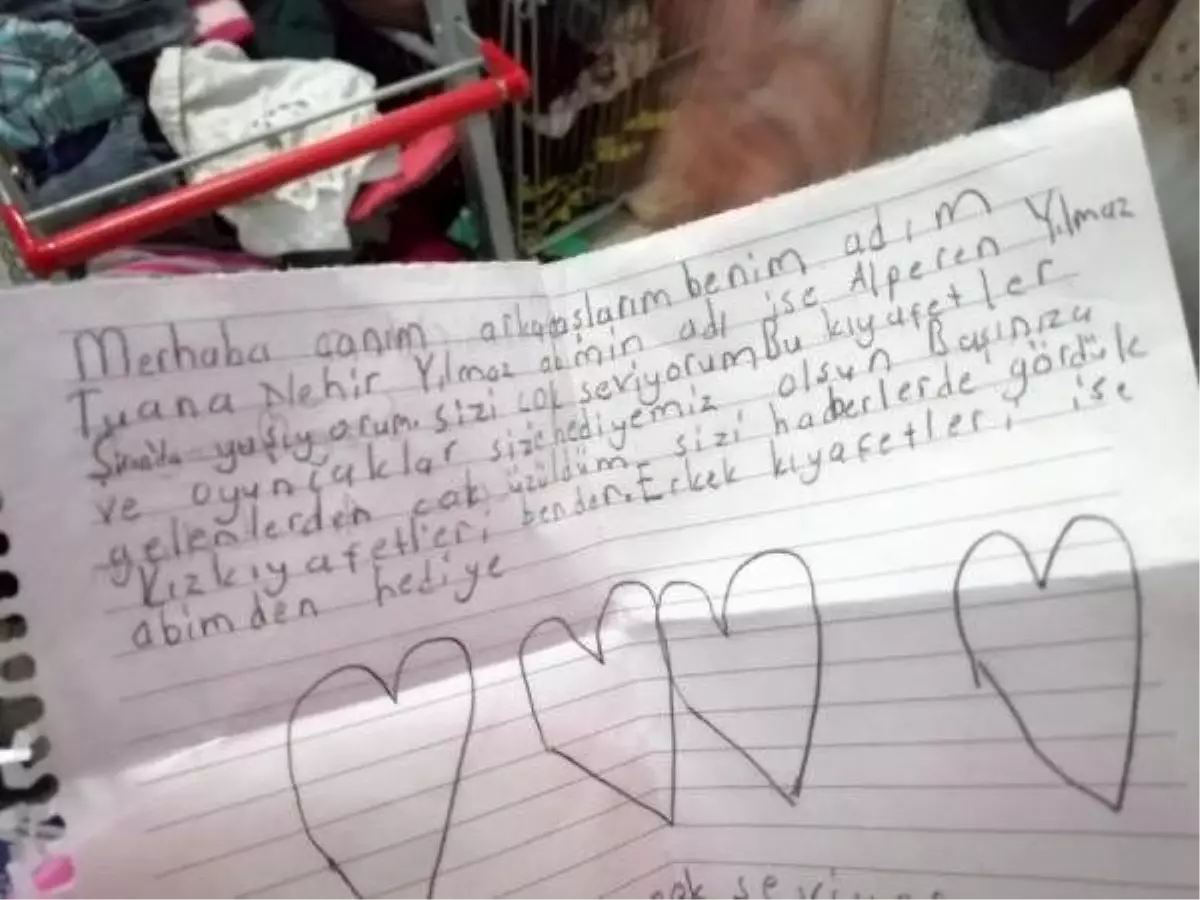 Merhaba canım arkadaşlarım benim adım
Tuana Nehir Yılmaz abimin adı ise Alperen Yılmaz
yaşıyorum. sizi çok seviyorum Bu kıyafetler
ve oyunçaklar size hediyemiz olsun Başınıza
gelenlerden çok üzüldüm sizi haberlerde gördük
Kız kıyafetleri benden. Erkek kıyafetleri ise
abimden hediye
çok